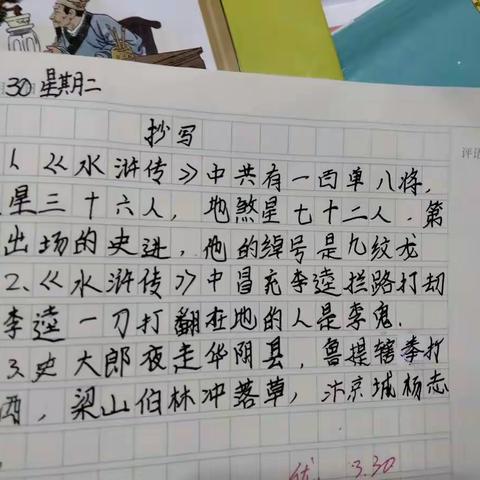 30 星期二
抄写
1、《水浒传》中共有一百单八将,
星三十六人,地煞星七十二人.第
出场的史进,他的绰号是九纹龙
2、《水浒传》中冒充李逵拦路打劫
李逵一刀打翻在地的人是李鬼.
3、史大郎夜走华阴县,鲁提辖拳打
西,梁山伯林冲落草,汴京城杨志
优 3.30
评语